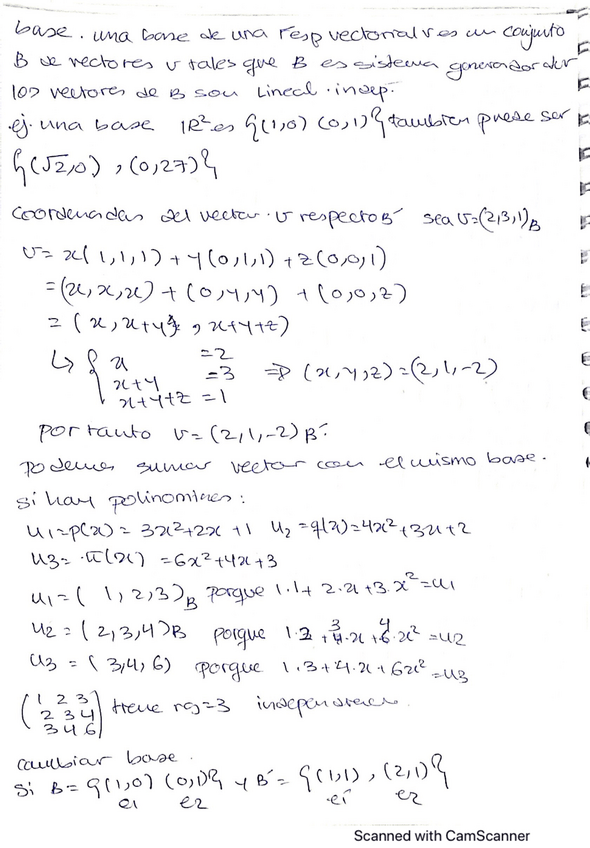 base. una base de una resp vectorial v es un conjunto
B de vectores v tales que B es sistema generador de v
los vectores de B son Lineal. indep.
ej. una base IR² es {(1,0) (0,1)} también puede ser
{(√2,0), (0,27)}
coordenadas del vector. v respecto B´ sea v=(2,3,1)B
v= x(1,1,1) + y(0,1,1) + z(0,0,1)
=(x,x,x) + (0,y,y) + (0,0,z)
= (x, x+y, x+y+z)
↳ { x =2
x+y =3 ⇒ (x,y,z)=(2,1,-2)
x+y+z =1
por tanto v= (2,1,-2) B´.
podemos sumar vector con el mismo base.
si hay polinomios:
u1=p(x)= 3x²+2x+1 u2=q(x)=4x²+3x+2
u3= π(x) =6x²+4x+3
u1=( 1,2,3)B porque 1.1+ 2.x+3.x²=u1
u2= ( 2,3,4)B porque 1.2+3.x+4.x²=u2
u3 = ( 3,4,6) porque 1.3+4.x+6x²=u3
( 1 2 3
2 3 4 ) tiene rg=3
3 4 6
cambiar base.
si B= {(1,0) (0,1)} y B´= {(1,1), (2,1)}
e1 e2 e1´ e2
Scanned with CamScanner